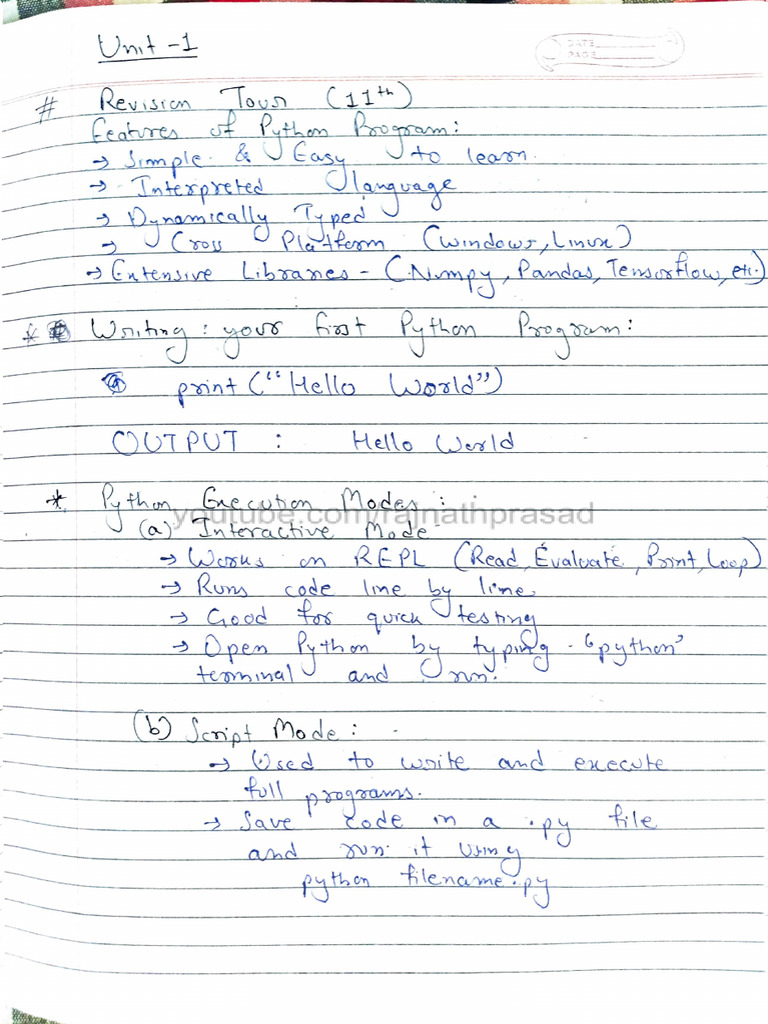 Unit - 1
DATE
PAGE
# Revision Tour (11th)
Features of Python Program:
→ Simple & Easy to learn.
→ Interpreted language
→ Dynamically Typed
→ Cross Platform (Windows, Linux)
→ Extensive Libraries - (Numpy, Pandas, Tensorflow, etc.)
* Writing : your first Python Program :
print (“Hello World”)
OUTPUT : Hello World
* Python Execution Modes :
youtube.com/rajnathprasad
(a) Interactive Mode
→ Works on REPL (Read, Evaluate, Print, Loop)
→ Runs code line by line.
→ Good for quick testing
→ Open Python by typing - ‘python’
terminal and run.
(b) Script Mode : -
→ Used to write and execute
full programs.
→ Save code in a .py file
and run it using
python filename.py